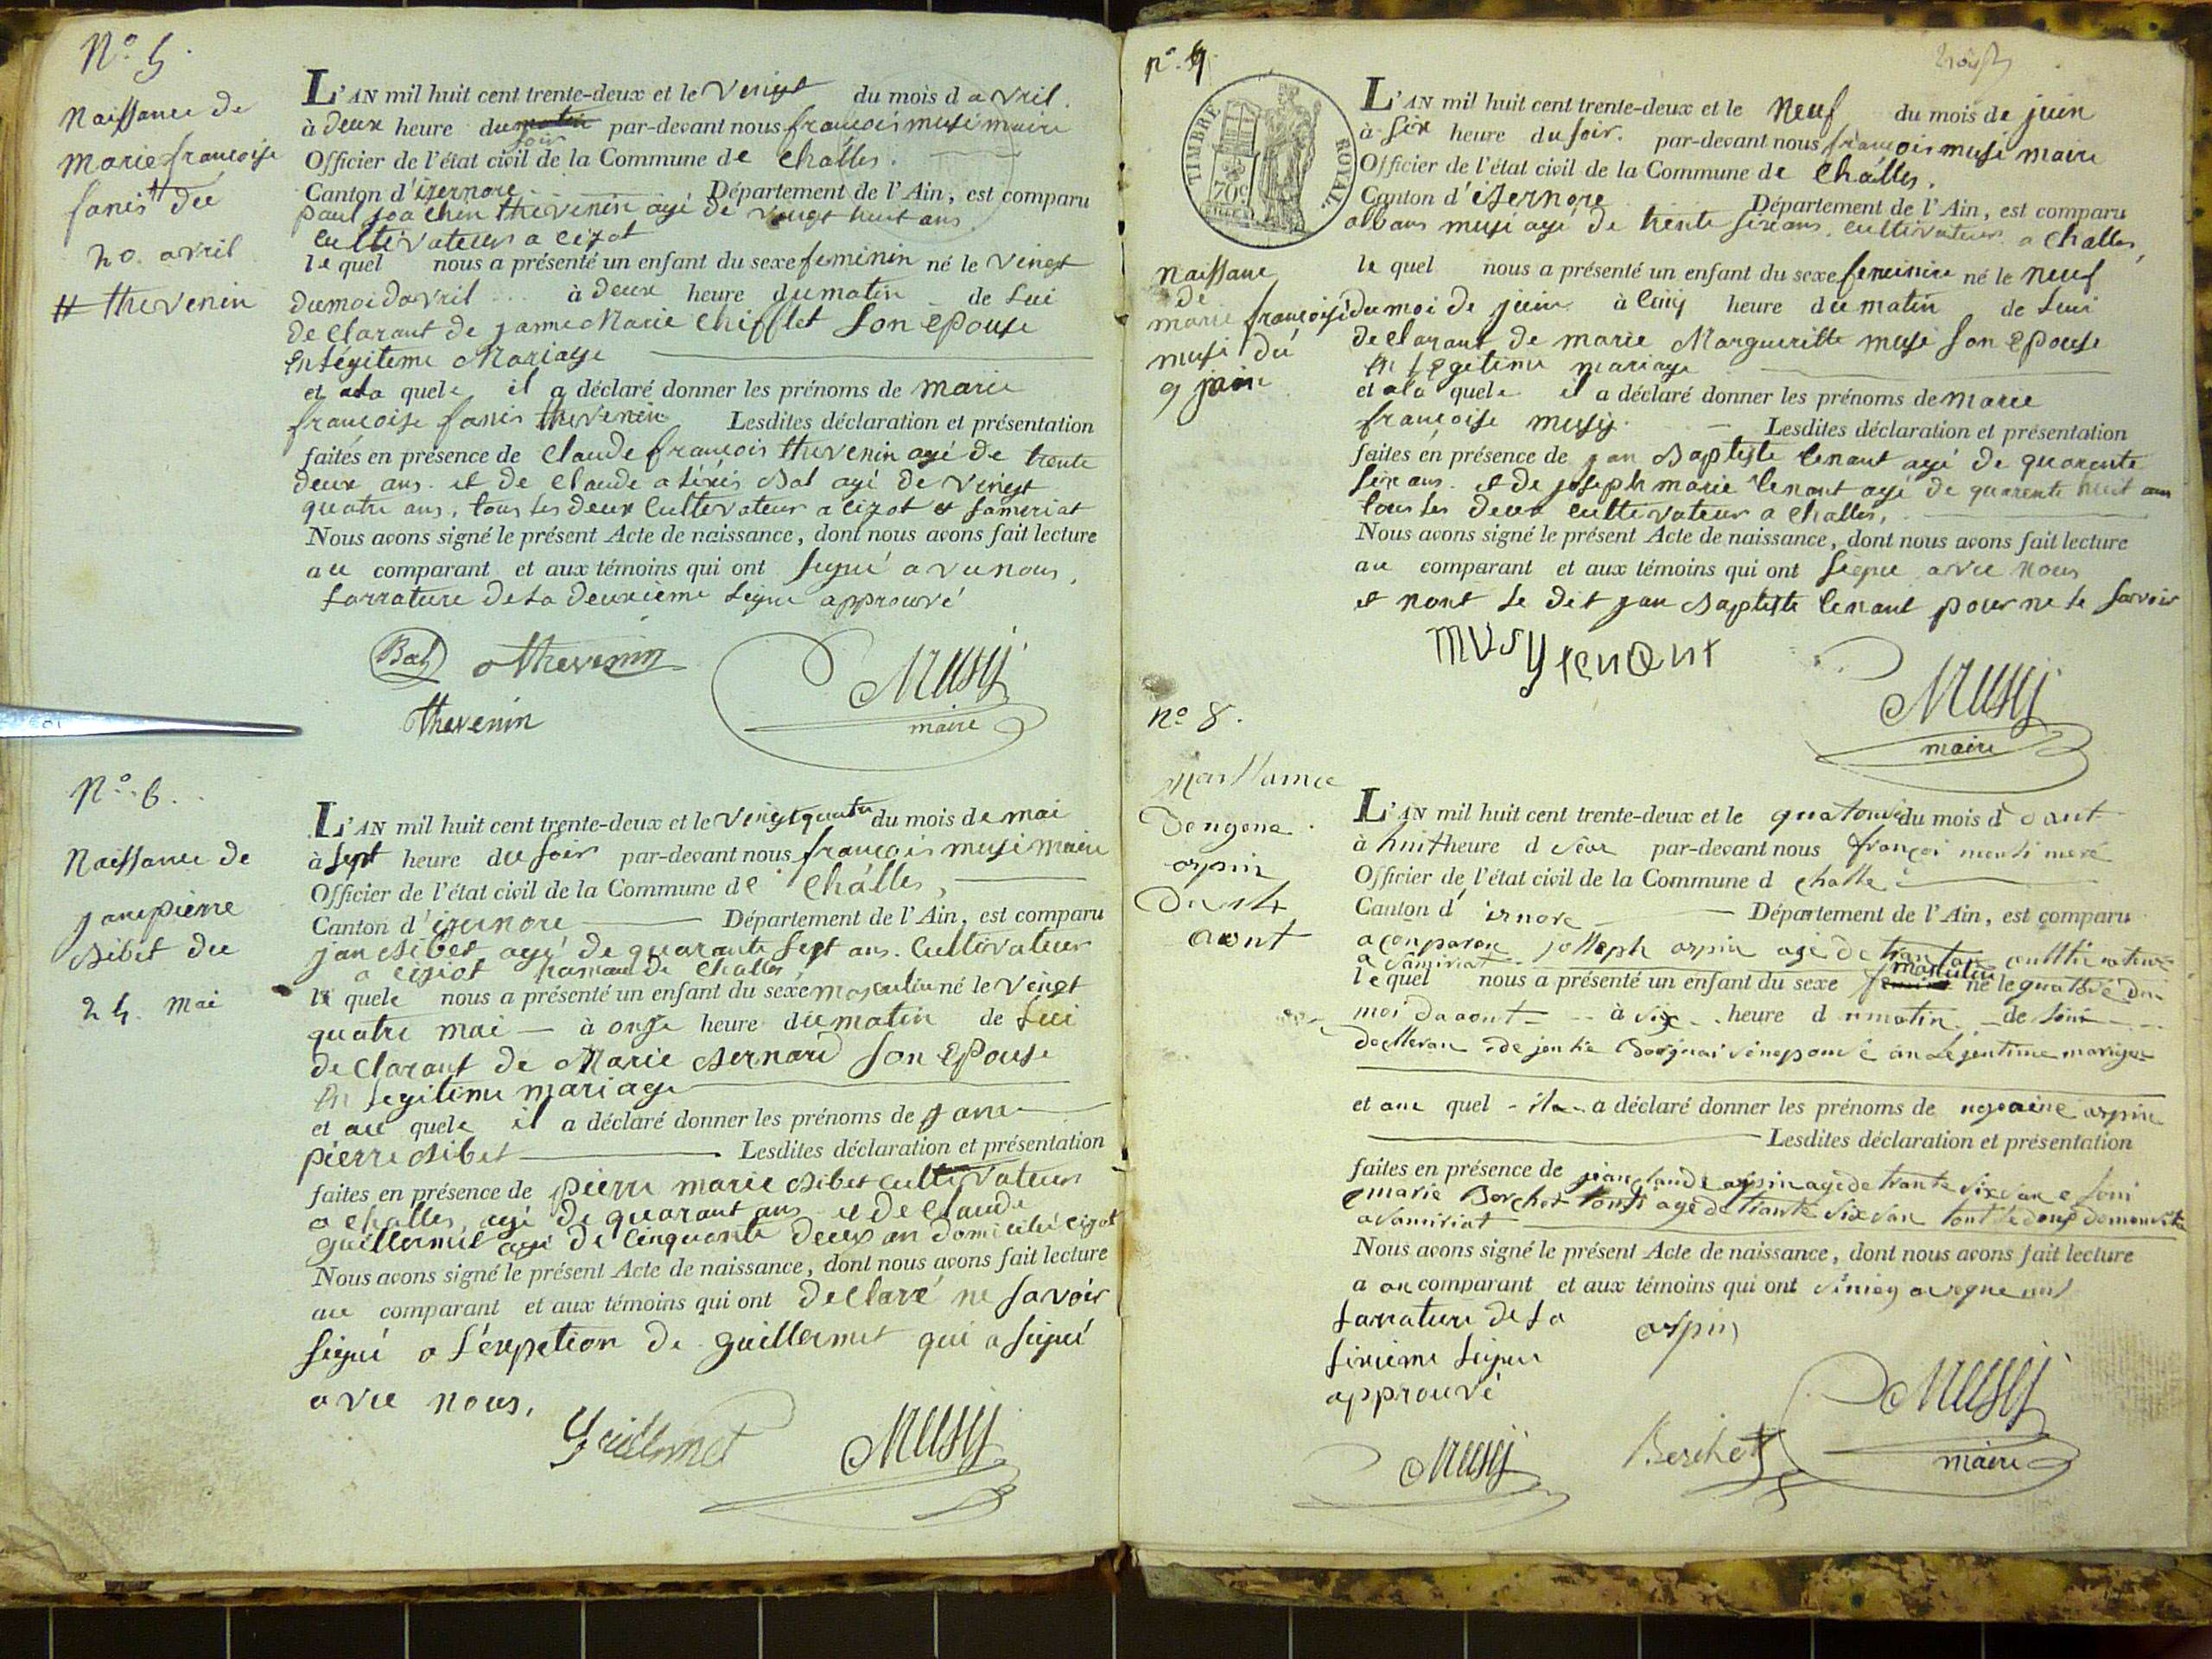 N.o 5.
Naissance de
marie françoise
fanis # du
20. avril
# thevenin
L'AN mil huit cent trente-deux et le vingt du mois d avril.
à deux heure du matin soir par-devant nous françois musi maire
Officier de l'état civil de la Commune de Challes.
Canton d'izernore Département de l'Ain, est comparu
paul joachin thevenin agé de vingt huit ans
cultivateur a cizot
le quel nous a présenté un enfant du sexe feminin né le vingt
du moi davril à deux heure du matin de lui
declarant de janne Marie Chifflet son epouse
en légitime Mariage
et a la quele il a déclaré donner les prénoms de marie
françoise fanis thevenin Lesdites déclaration et présentation
faites en présence de claude françois thevenin agé de trente
deux ans. et de claude aléxis Bal agé de vingt
quatre ans, tous les deux cultivateur a cizot et Sameriat
Nous avons signé le présent Acte de naissance, dont nous avons fait lecture
au comparant et aux témoins qui ont signé avec nous,
larrature de la deuxième ligne approuvé
Bal thevenin Musy
thevenin maire
N.o 6.
Naissance de
jane pierre
Bibet du
24. mai
L'AN mil huit cent trente-deux et le vingt quatre du mois de mai
à sept heure du soir par-devant nous françois musi maire
Officier de l'état civil de la Commune de Challes,
Canton d'izernore Département de l'Ain, est comparu
jan Bibet agé de quarante sept ans. cultivateur
a cizot hamau de Challes,
le quele nous a présenté un enfant du sexe masculin né le vingt
quatre mai — à onze heure du matin de lui
declarant de Marie Bernard son epouse
en legitime mariage
et au quele il a déclaré donner les prénoms de jane
pierre Bibet Lesdites déclaration et présentation
faites en présence de pierre marie Bibet cultivateur
a challes, agé de quarant ans et de claude
guillermet agé de cinquante deux an domicilié cizot
Nous avons signé le présent Acte de naissance, dont nous avons fait lecture
au comparant et aux témoins qui ont declaré ne savoir
signé a l'éxpetion de guillermet qui a signé
avec nous,
Guillermet Musy
n.o 7.
TIMBRE ROYAL
70c
L'AN mil huit cent trente-deux et le neuf du mois de juin
à six heure du soir. par-devant nous françois musi maire
Officier de l'état civil de la Commune de Challes,
Canton d'izernore Département de l'Ain, est comparu
albans musi agé de trente six ans. cultivateur a challes,
naissance
de
marie françoise
musi du
9 juin
le quel nous a présenté un enfant du sexe feminin né le neuf
du moi de juin à cinq heure du matin de lui
declarant de marie Margueritte musi son epouse
en legitime mariage
et a la quele il a déclaré donner les prénoms de marie
françoise musy. Lesdites déclaration et présentation
faites en présence de jan Baptiste lenant agé de quarente
six ans. et de joseph marie lenant agé de quarente huit ans
tous les deux cultivateur a challes,
Nous avons signé le présent Acte de naissance, dont nous avons fait lecture
au comparant et aux témoins qui ont signé avec nous
et nont le dit jan Baptiste lenant pour ne le savoir
musy lenant
Musy
maire
n.o 8.
L'AN mil huit cent trente-deux et le quatorsé du mois d aout
à huit heure d par-devant nous françoi
Officier de l'état civil de la Commune d challe
Canton d' Département de l'Ain, est comparu
orpin
aout
a Samiriat
le quel nous a présenté un enfant du sexe masculin né le quatorsé du
moi daaout à six heure d umatin de
et au quel a déclaré donner les prénoms de orpin
Lesdites déclaration et présentation
faites en présence de jean claude orpin agé de trante six
marie Berchet agé de trante six
a Samiriat
Nous avons signé le présent Acte de naissance, dont nous avons fait lecture
a au comparant et aux témoins qui ont
larrature de la
sixieme ligne
approuvé
orpin
Musy
maire
Musy Berchet